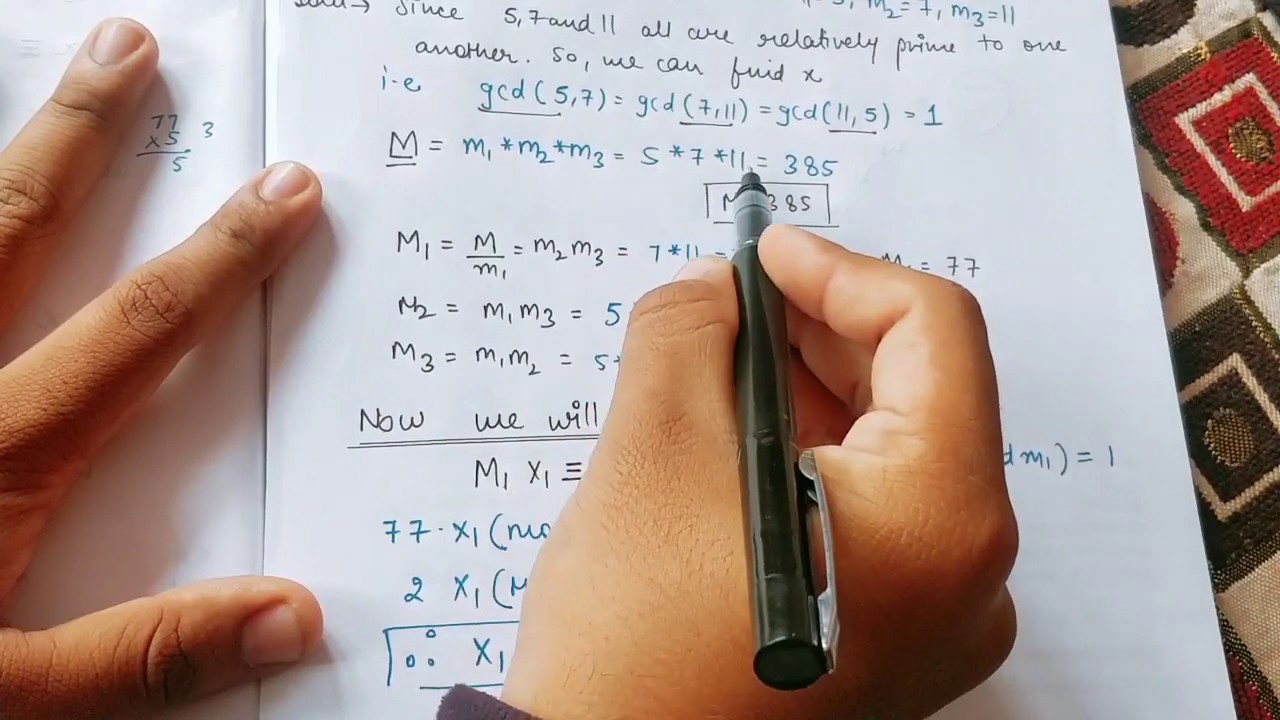 m₂=7, m₃=11
Since 5,7 and 11 all are relatively prime to one
another. So, we can find x
i.e gcd(5,7) = gcd(7,11) = gcd(11,5) = 1
M = m₁*m₂*m₃ = 5*7*11 = 385
385
M₁ = M/m₁ = m₂m₃ = 7*11 = = 77
M₂ = m₁m₃ = 5
M₃ = m₁m₂ = 5*
Now we will
M₁ X₁ ≡ m₁) = 1
77·X₁(
2 X₁(
∴ X₁
77
×5 3
5